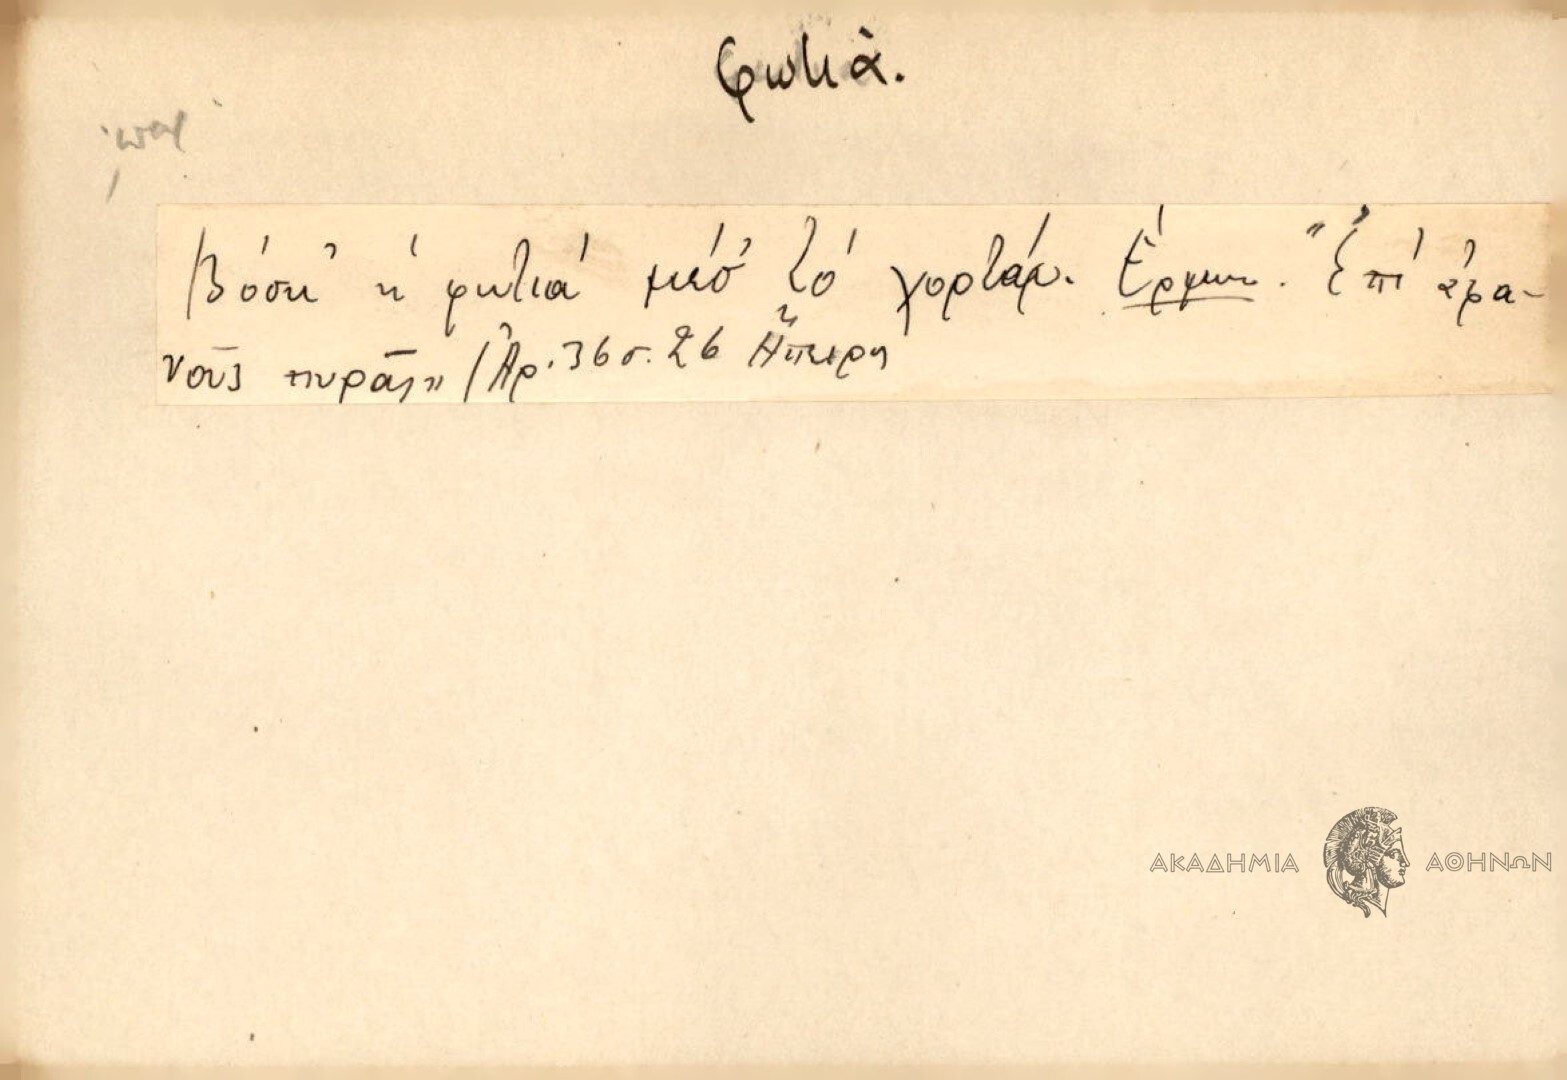 φωτιὰ.
Βόσκ' ἡ φωτιά μέσ' τό χορτάρ. Ἑρμην. "Ἐπί ἀφα-
νοῦς πυρᾶς" / Ἀρ. 36 σ. 26 Ἤπειρος
ΑΚΑΔΗΜΙΑ ΑΘΗΝΩΝ